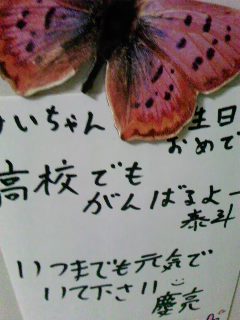 けいちゃん 生日
おめで
高校でも
がんばるよー
泰斗
いつまでも元気で
いて下さい
慶亮